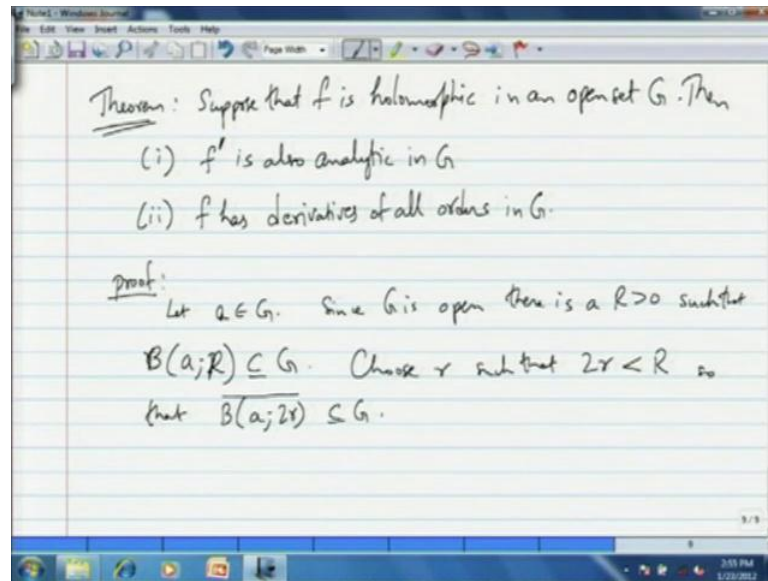 Note1 - Windows Journal
File Edit View Insert Actions Tools Help
Page Width
Theorem: Suppose that f is holomorphic in an open set G. Then
(i) f' is also analytic in G
(ii) f has derivatives of all orders in G.
proof:
Let a ∈ G. Since G is open there is a R>0 such that
B(a;R) ⊆ G. Choose r such that 2r < R so
that \overline{B(a;2r)} ⊆ G.
9/9
9
2:55 PM
1/23/2012